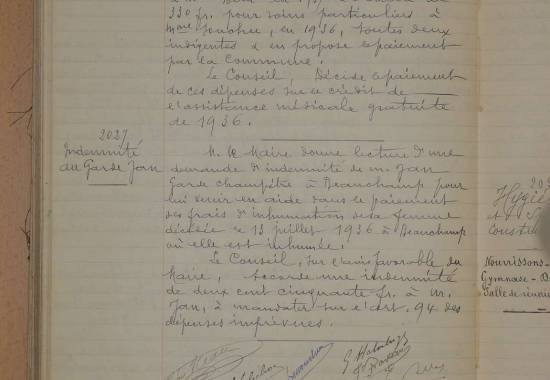 330 fr. pour soins particuliers à
Mme Souchu, en 1936, toutes deux
indigentes & en propose le paiement
par la Commune.
Le Conseil, Décide le paiement
de ces dépenses sur le crédit de
l'assistance médicale gratuite
de 1936.
2027
Indemnité
au Garde Jan
M. le Maire donne lecture d'une
demande d'indemnité de M. Jan
Garde champêtre à Beauchamp pour
lui venir en aide dans le paiement
des frais d'inhumation de sa femme
décédée le 13 juillet 1936 à Beauchamp
où elle est inhumée.
Le Conseil, sur l'avis favorable du
Maire, accorde une indemnité
de deux cent cinquante fr. à M.
Jan, à mandater sur l'art. 94 des
dépenses imprévues.
20
Hygiè
et
Constru
Nourrissons-
Gymnase - D
Salle de réunio